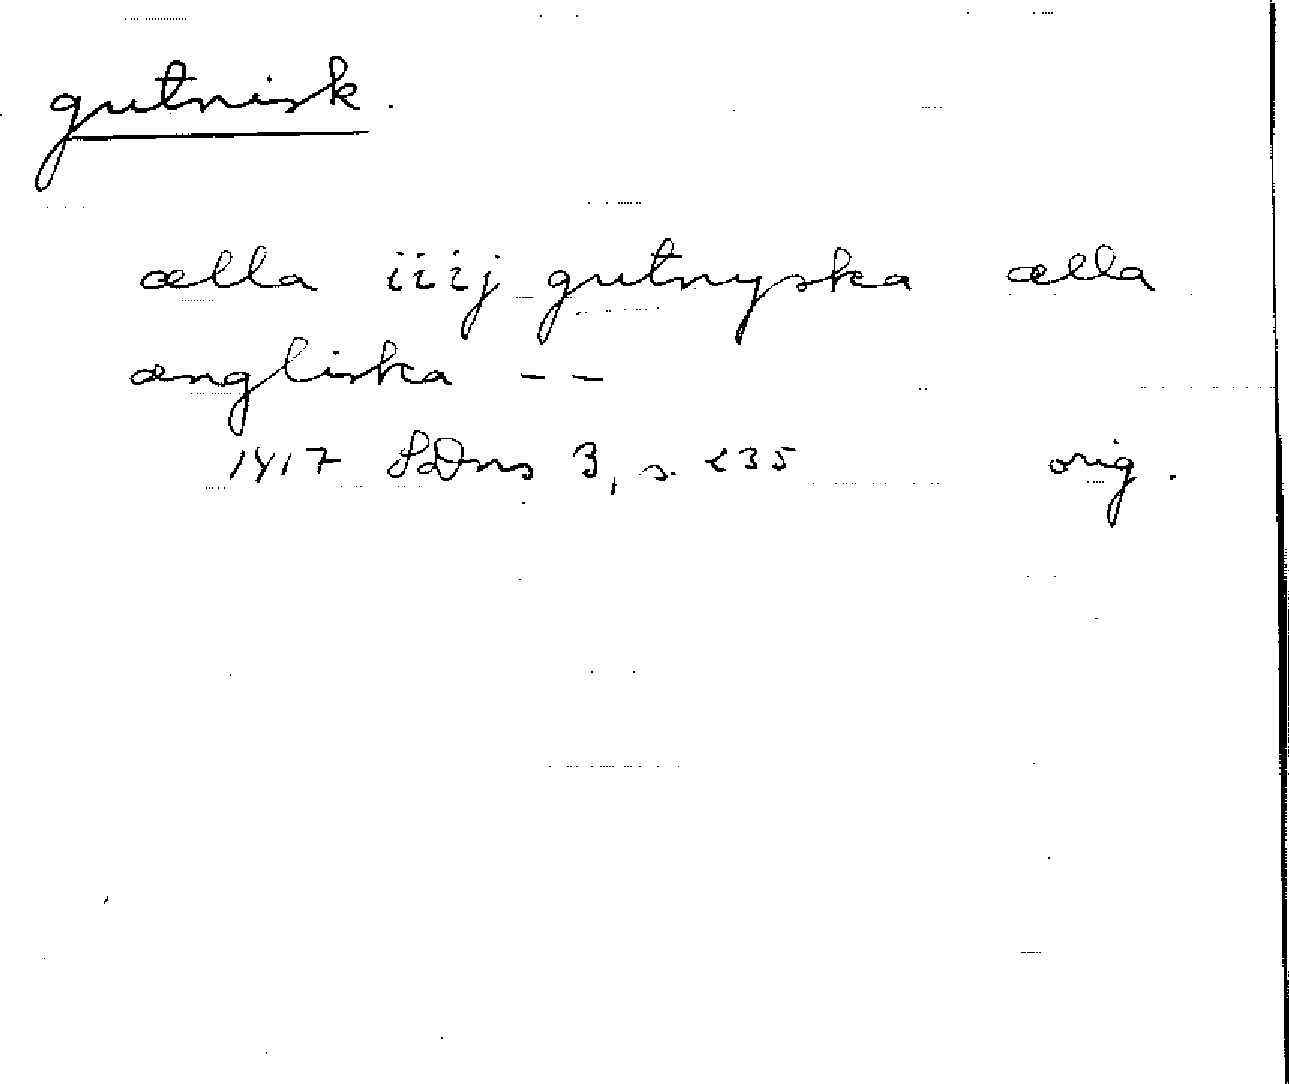 gutnisk.
ælla iiij gutnyska ælla
ængliska --
1417 SDns 3, s. 235 orig.